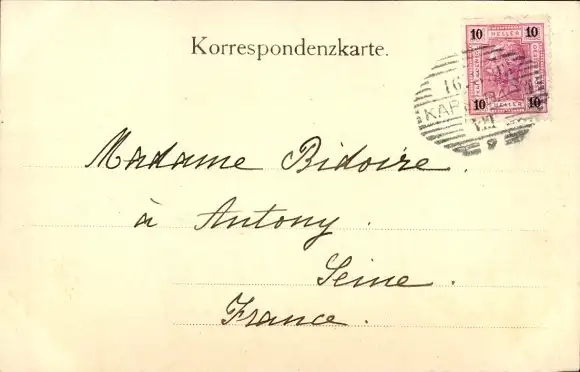 Korrespondenzkarte.
10 HELLER 10
10 HELLER 10
16
KAR
VII
9
Madame Bidoire.
à Antony.
Seine.
France.